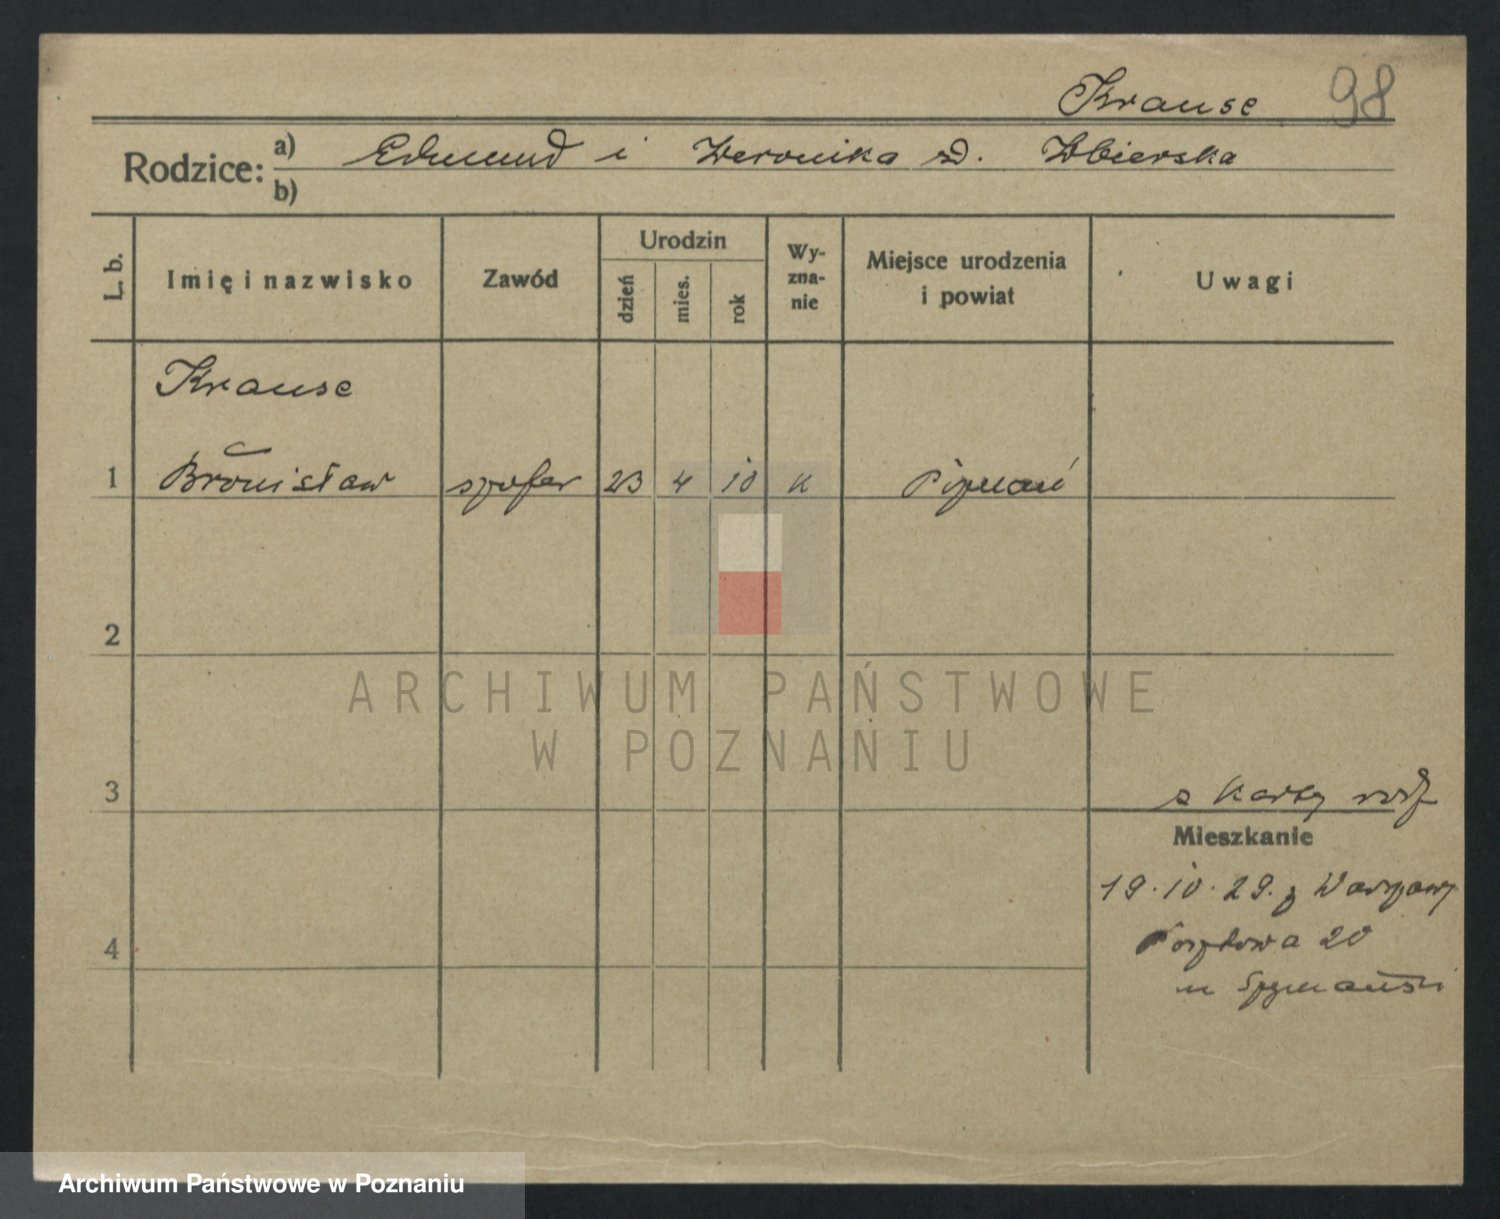 Krause 98
Rodzice: a) Edmund i Weronika z d. Wbierska
b)
L. b. Imię i nazwisko Zawód Urodzin dzień mies. rok Wy-zna-nie Miejsce urodzenia i powiat Uwagi
Krause
1 Bronisław szofer 23 4 10 k
2
ARCHIWUM PAŃSTWOWE
W POZNANIU
3 z karty
Mieszkanie
19.10.29. z Warszawy
4 20
Archiwum Państwowe w Poznaniu